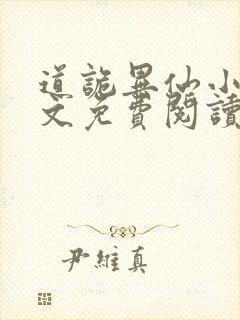 道詭異仙小
文免費閱讀
尹維真